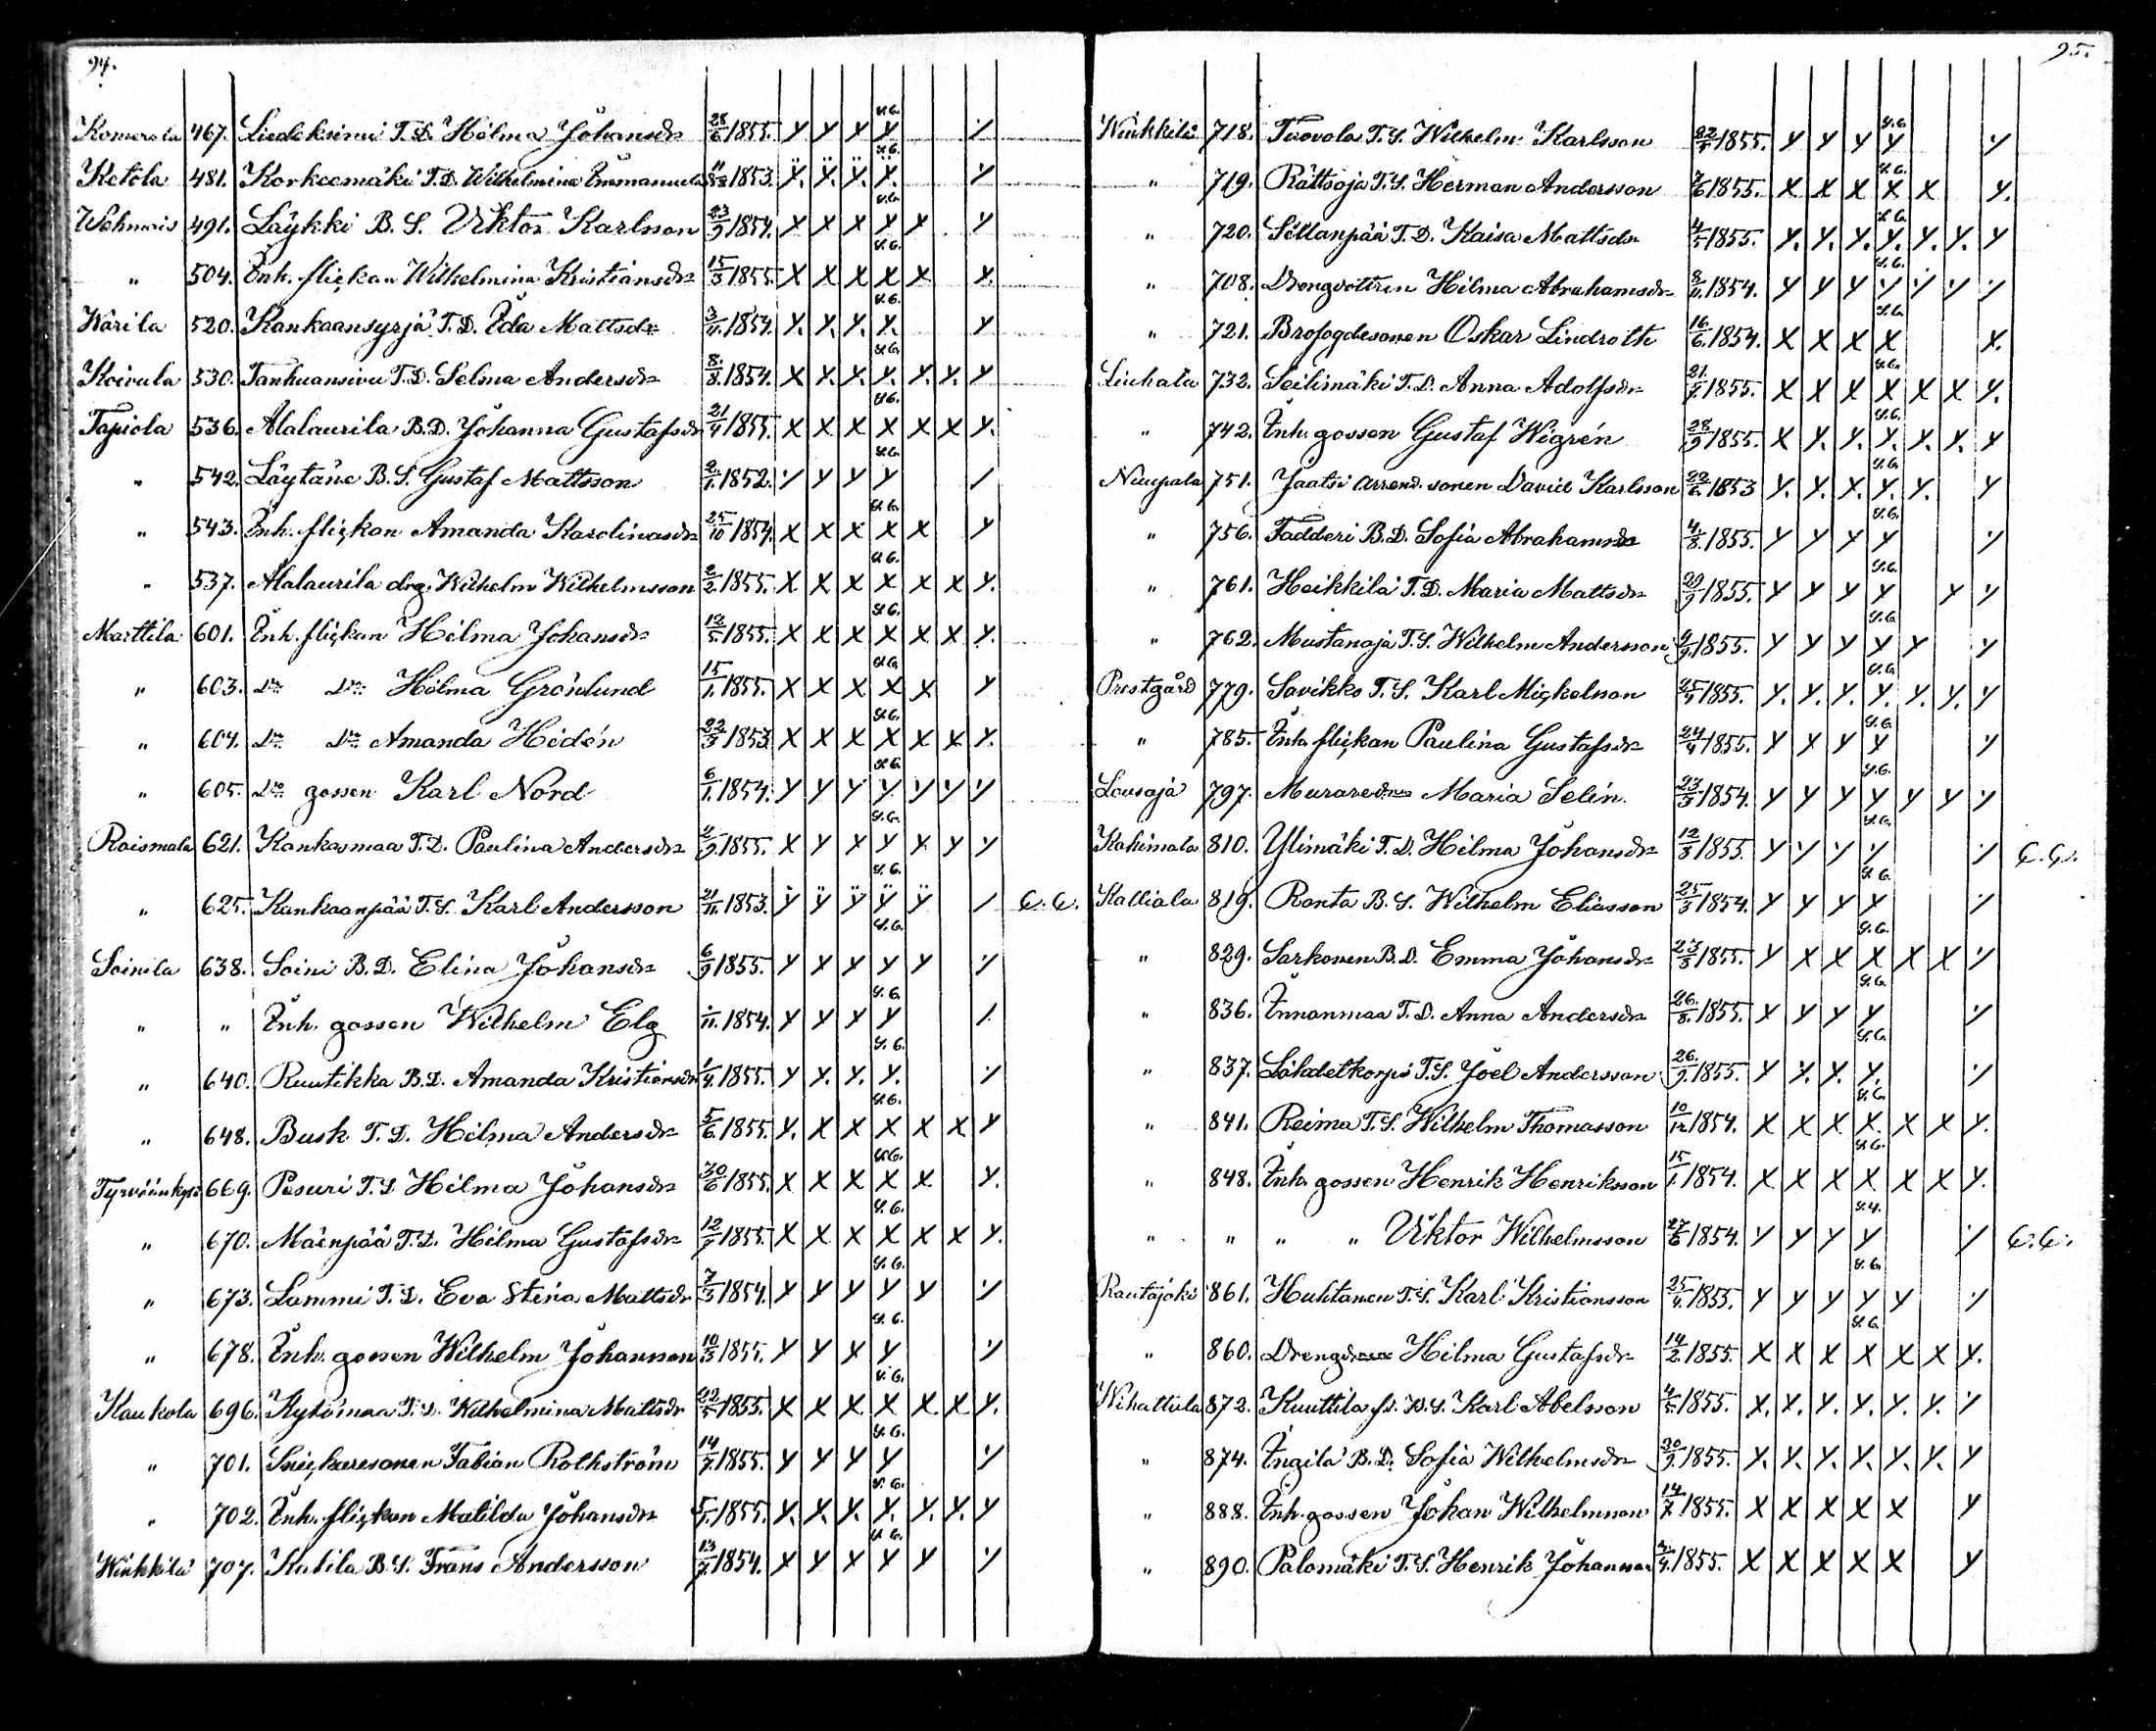 94.
Komerola 467. Liedeksinii T.D. Hilma Johansdr 28/6 1855. y y y s.G. y y
Ketola 481. Korkeemäki T.D. Wilhelmina Emmanuelsdr 1853. ÿ. ÿ. ÿ. s.G. ÿ. y
Wehmais 491. Läykki B.S. Viktor Karlsson 23/9 1854. x x x s.G. x x y
" 504. Inh. flickan Wilhelmina Kristiansdr 15/3 1855. x x x s.G. x x x.
Wärilä 520. Kankaansyrjä T.D. Ida Mattsdr 3/11. 1854. y. y. y. s.G. y. y
Koivula 530. Tanhuansivu T.D. Selma Andersdr 8/8. 1854. x y. x. s.G. y. y. y. y
Tapiola 536. Alalaurila B.D. Johanna Gustafsdr 21/4 1855. x x x s.G. x x x y.
" 542. Läytäne B.S. Gustaf Mattsson 2/1. 1852. y y y s.G. y /
" 543. Inh. flickan Amanda Karolinasdr 25/10 1854. x x x s.G. x x y
" 537. Alalaurila drg. Wilhelm Wilhelmsson 2/2. 1855. x x x s.G. x x x y.
Marttila 601. Inh. flickan Hilma Johansdr 12/5. 1855. x x x s.G. x x x y.
" 603. Do Do Hilma Grönlund 15/1. 1855. x x x s.G. x x y
" 604. Do Do Amanda Hidén 22/3 1853. x x x s.G. x x x y.
" 605. Do gossen Karl Nord 6/1. 1854. y y y s.G. y y y y
Roismala 621. Kankasmaa T.D. Paulina Andersdr 2/9. 1855. x y x s.G. y x y y
" 625. Kankaanpää T.S. Karl Andersson 21/11. 1853. ÿ ÿ ÿ s.G. ÿ ÿ / C.C.
Soinila 638. Soini B.D. Elina Johansdr 6/9 1855. y x y s.G. y y y
" " Inh. gossen Wilhelm Elg 11. 1854. y y y s.G. y /.
" 640. Ruutikka B.D. Amanda Kristiansdr 1/4. 1855. y y. y. s.G. y. y
" 648. Busk T.D. Hilma Andersdr 5/6. 1855. y. x x s.G. x x x y
Tyrväänkylä 669. Pesuri T.D. Hilma Johansdr 30/6 1855. x x x s.G. x x y.
" 670. Mäenpää T.D. Hilma Gustafsdr 12/9 1855. x x x s.G. x x x y.
" 673. Lammi T.D. Eva Stina Mattsdr 7/3 1854. y y y s.G. y y y
" 678. Inh. gossen Wilhelm Johansson 10/3 1855. y y x s.G. y y
Kaukola 696. Kytömaa T.D. Wilhelmina Mattsdr 22/5 1855. x x x s.G. x x. x y.
" 701. Snickaresonen Fabian Rothström 14/7. 1855. y y y s.G. y y
" 702. Inh. flickan Matilda Johansdr 5/1. 1855. y. y. y. s.G. y. y. y. y
Winkkilä 707. Kutila B.S. Frans Andersson 13/7. 1854. x y x s.G. y y y
95.
Winkkilä 718. Tuovola T.S. Wilhelm Karlsson 22/5 1855. y y y s.G. y y
" 719. Rättsoja T.S. Herman Andersson 7/6 1855. x x x s.G. x x y.
" 720. Sillanpää T.D. Kaisa Mattsdr 4/5 1855. y. y. y. s.G. y. y. y. y
" 708. Drengdottren Hilma Abrahamsdr 8/11. 1854. y y y s.G. y y y y
" 721. Brofogdesonen Oskar Lindroth 16/6. 1854. x x x s.G. x x.
Liuhala 732. Seilimäki T.D. Anna Adolfsdr 21. 1855. x x x s.G. x x x y.
" 742. Inh. gossen Gustaf Wigrén 28/9 1855. x y. y. s.G. y. y. y. y
Nuupala 751. Jaatsi arrend. sonen David Karlsson 22/6. 1853 y. y. x. s.G. y. y. y
" 756. Fadderi B.D. Sofia Abrahamsdr 4/8. 1855. y y y s.G. y y
" 761. Heikkilä T.D. Maria Mattsdr 29/9 1855. y y y s.G. y y y
" 762. Mustanoja T.S. Wilhelm Andersson 9/9. 1855. y y y s.G. y y y
Prestgård 779. Savikko T.S. Karl Mickelson 25/4 1855. y. y. y. s.G. y. y. y. y
" 785. Inh. flickan Paulina Gustafsdr 24/4 1855. y x y s.G. y y
Lousaja 797. Muraredr Maria Selin. 23/3 1854. y y y s.G. y y y y
Kahimala 810. Ylimäki T.D. Hilma Johansdr 12/3 1855. y y y s.G. y y C.C.
Kalliala 819. Ranta B.S. Wilhelm Eliasson 25/3 1854. y y y s.G. y y
" 829. Sarkonen B.D. Emma Johansdr 23/3 1855. y x x s.G. x x x y
" 836. Innanmaa T.D. Anna Andersdr 26./8. 1855. x y y s.G. y y
" 837. Lähdetkorpi T.S. Joel Andersson 26./9. 1855. y y. y. s.G. y. y
" 841. Reima T.S. Wilhelm Thomasson 10/12 1854. x x x s.G. x. x x y.
" 848. Inh. gossen Henrik Henriksson 15/1. 1854. x x x s.G. x x x y.
" " " " Viktor Wilhelmsson 27/6 1854. y y y y y C.C.
Rautajoki 861. Huhtanen T.S. Karl Kristiansson 25/4. 1855. y y y s.G. y y y
" 860. Drengdr Hilma Gustafsdr 14/2. 1855. x x x s.G. x x x y.
Wihattula 872. Kuuttila B.S. Karl Abelsson 4/5. 1855. x. x. y. y. y. y. y
" 874. Ingilä B.D. Sofia Wilhelmsdr 30/9. 1855. y. y. y. y. y. y. y
" 888. Inh. gossen Johan Wilhelmsson 14/7 1855. x x x x x y
" 890. Palomäki T.S. Henrik Johansson 4. 1855. x x x x x y